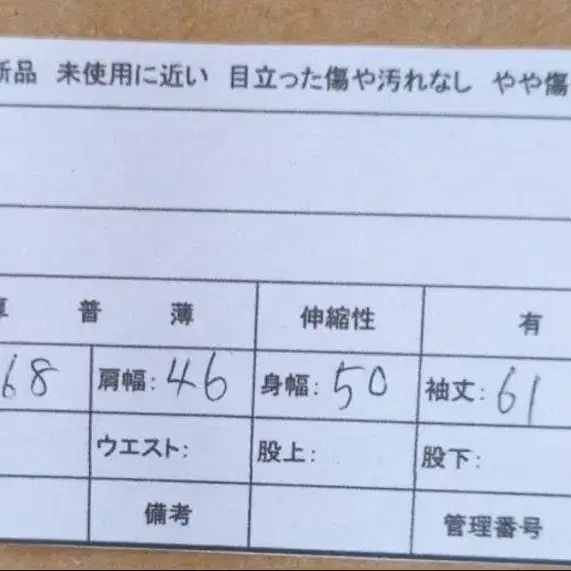 新品 未使用に近い 目立った傷や汚れなし やや傷
厚 普 薄 伸縮性 有
68 肩幅: 46 身幅: 50 袖丈: 61
ウエスト: 股上: 股下:
備考 管理番号